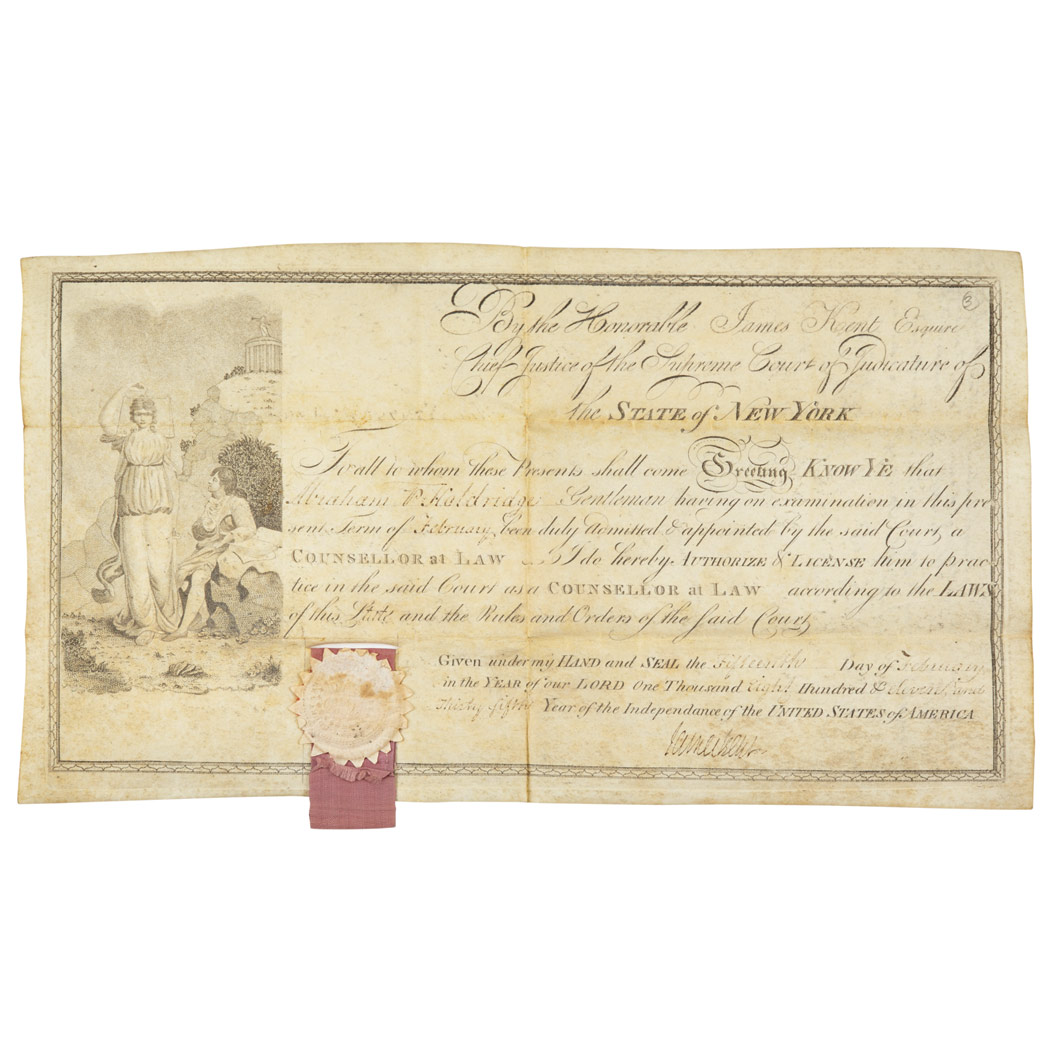 3
By the Honorable James Kent Esquire
Chief Justice of the Supreme Court of Judicature of
the STATE of NEW YORK
To all to whom these Presents shall come Greeting KNOW YE that
Abraham P Holdridge Gentleman having on examination in this pre
sent Term of February been duly admitted & appointed by the said Court, a
COUNSELLOR at LAW I do hereby AUTHORIZE & LICENSE him to prac
tice in the said Court as a COUNSELLOR at LAW according to the LAWS
of this State and the Rules and Orders of the said Court
Given under my HAND and SEAL the fifteenth Day of February
in the YEAR of our LORD One Thousand Eight Hundred & eleven, and
thirty fifth Year of the Independance of the UNITED STATES of AMERICA
James Kent